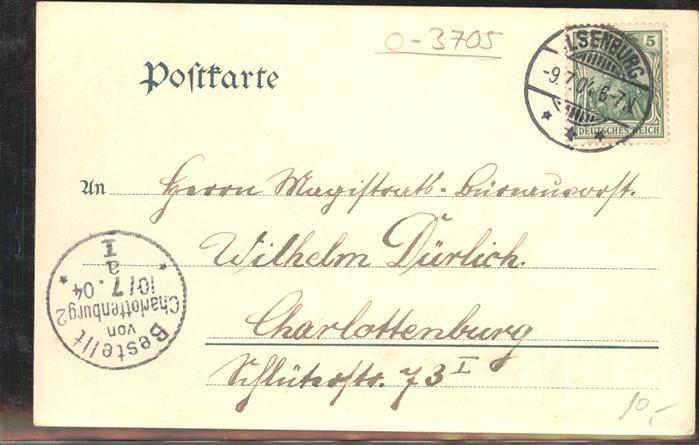 O-3705
5
ILSENBURG
-9.7.04.6-7N
DEUTSCHES REICH
Postkarte
An Herrn Magistrats-Bureauvorst.
Wilhelm Dürlich.
Charlottenburg
Schlüterstr. 73 I
Bestellt
von
Charlottenburg 2
10/7.04
a
I
10,-